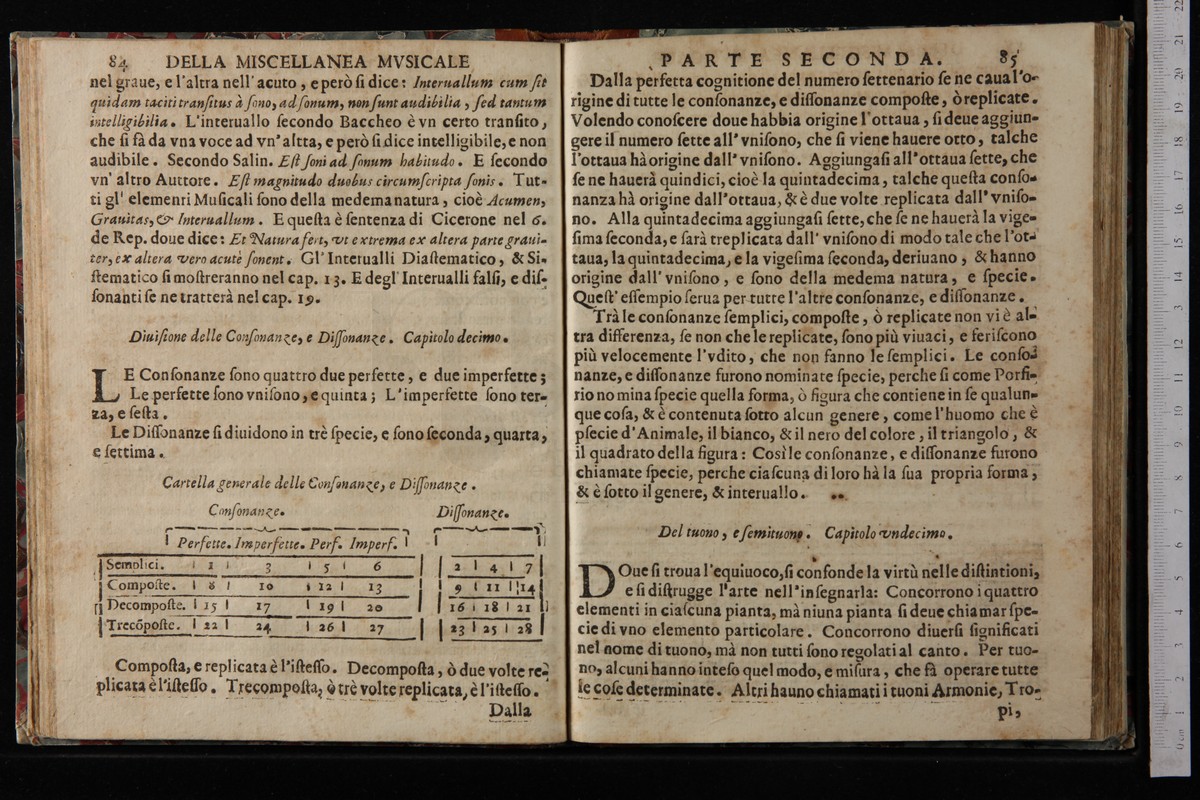 84 DELLA MISCELLANEA MVSICALE
nel graue, e l'altra nell' acuto , e però ſi dice : Interuallum cum ſit
quidam taciti tranſitus à ſono, ad ſonum, non ſunt audibilia , ſed tantum
intelligibilia. L'interuallo ſecondo Baccheo è vn certo tranſito,
che ſi fà da vna voce ad vn' altta, e però ſi dice intelligibile, e non
audibile . Secondo Salin. Eſt ſoni ad ſonum habitudo . E ſecondo
vn' altro Auttore . Eſt magnitudo duobus circumſcripta ſonis . Tut-
ti gl' elemenri Muſicali ſono della medema natura , cioè Acumen,
Grauitas, & Interuallum . E queſta è ſentenza di Cicerone nel 6.
de Rep. doue dice : Et Natura fert, vt extrema ex altera parte graui-
ter, ex altera vero acutè ſonent . Gl' Interualli Diaſtematico , & Si-
ſtematico ſi moſtreranno nel cap. 13. E degl' Interualli falſi, e diſ-
ſonanti ſe ne tratterà nel cap. 19.
Diuiſione delle Conſonanze, e Diſſonanze . Capitolo decimo .
LE Conſonanze ſono quattro due perfette , e due imperfette ;
Le perfette ſono vniſono, e quinta ; L'imperfette ſono ter-
za, e ſeſta .
Le Diſſonanze ſi diuidono in trè ſpecie, e ſono ſeconda, quarta,
e ſettima .
Cartella generale delle Conſonanze, e Diſſonanze .
Conſonanze. Diſſonanze.
Perfette. Imperfette. Perf. Imperf.
Semplici. 1 3 5 6 2 4 7
Compoſte. 8 10 12 13 9 11 14
Decompoſte. 15 17 19 20 16 18 21
Trecōpoſte. 22 24 26 27 23 25 28
Compoſta, e replicata è l'iſteſſo. Decompoſta, ò due volte re-
plicata è l'iſteſſo . Trecompoſta, ò trè volte replicata, è l'iſteſſo .
Dalla
PARTE SECONDA. 85
Dalla perfetta cognitione del numero ſettenario ſe ne caua l'o-
rigine di tutte le conſonanze, e diſſonanze compoſte, ò replicate.
Volendo conoſcere doue habbia origine l'ottaua , ſi deue aggiun-
gere il numero ſette all' vniſono, che ſi viene hauere otto, talche
l'ottaua hà origine dall' vniſono. Aggiungaſi all'ottaua ſette, che
ſe ne hauerà quindici, cioè la quintadecima, talche queſta conſo-
nanza hà origine dall'ottaua, & è due volte replicata dall' vniſo-
no. Alla quintadecima aggiungaſi ſette, che ſe ne hauerà la vige-
ſima ſeconda, e ſarà treplicata dall' vniſono di modo tale che l'ot-
taua, la quintadecima, e la vigeſima ſeconda, deriuano , & hanno
origine dall' vniſono , e ſono della medema natura , e ſpecie.
Queſt' eſſempio ſerua per tutte l'altre conſonanze, e diſſonanze .
Trà le conſonanze ſemplici, compoſte , ò replicate non vi è al-
tra differenza, ſe non che le replicate, ſono più viuaci, e feriſcono
più velocemente l'vdito, che non fanno le ſemplici. Le conſo-
nanze, e diſſonanze furono nominate ſpecie, perche ſi come Porfi-
rio no mina ſpecie quella forma, ò figura che contiene in ſe qualun-
que coſa, & è contenuta ſotto alcun genere , come l'huomo che è
pſecie d'Animale, il bianco, & il nero del colore , il triangolo , &
il quadrato della figura : Così le conſonanze, e diſſonanze furono
chiamate ſpecie, perche ciaſcuna di loro hà la ſua propria forma ,
& è ſotto il genere, & interuallo.
Del tuono , e ſemituono . Capitolo vndecimo.
DOue ſi troua l'equiuoco, ſi confonde la virtù nelle diſtintioni,
e ſi diſtrugge l'arte nell'inſegnarla: Concorrono i quattro
elementi in ciaſcuna pianta, mà niuna pianta ſi deue chiamar ſpe-
cie di vno elemento particolare . Concorrono diuerſi ſignificati
nel nome di tuono, mà non tutti ſono regolati al canto . Per tuo-
no, alcuni hanno inteſo quel modo, e miſura , che fà operare tutte
le coſe determinate . Altri hauno chiamati i tuoni Armonie, Tro-
pi,
0 cm 1 2 3 4 5 6 7 8 9 10 11 12 13 14 15 16 17 18 19 20 21 22